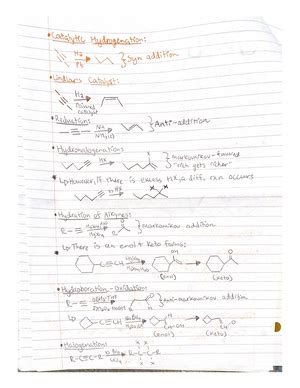 • Catalytic Hydrogenation:
H2
Pt
} Syn addition
• Lindlar's Catalyst:
H2
poisoned
catalyst
• Reduction:
Na
NH3(l)
} Anti-addition
• Hydrohalogenation:
HX
X
} Markovnikov-favored
"rich gets richer"
↳ However, if there is excess HX, a diff. rxn occurs
xs HX
X X
• Hydration of Alkynes:
R-≡
H2SO4
HgSO4
O
R
} Markovnikov addition
↳ There is an enol + keto forms:
C≡CH
OH
(enol)
O
(keto)
• Hydroboration-Oxidation:
R-≡
R
} Anti-markovnikov addition
↳
C≡CH
OH
(enol)
O
(keto)
• Halogenation:
X X
R-C≡C-R
CCl4
R-C-C-R
X X